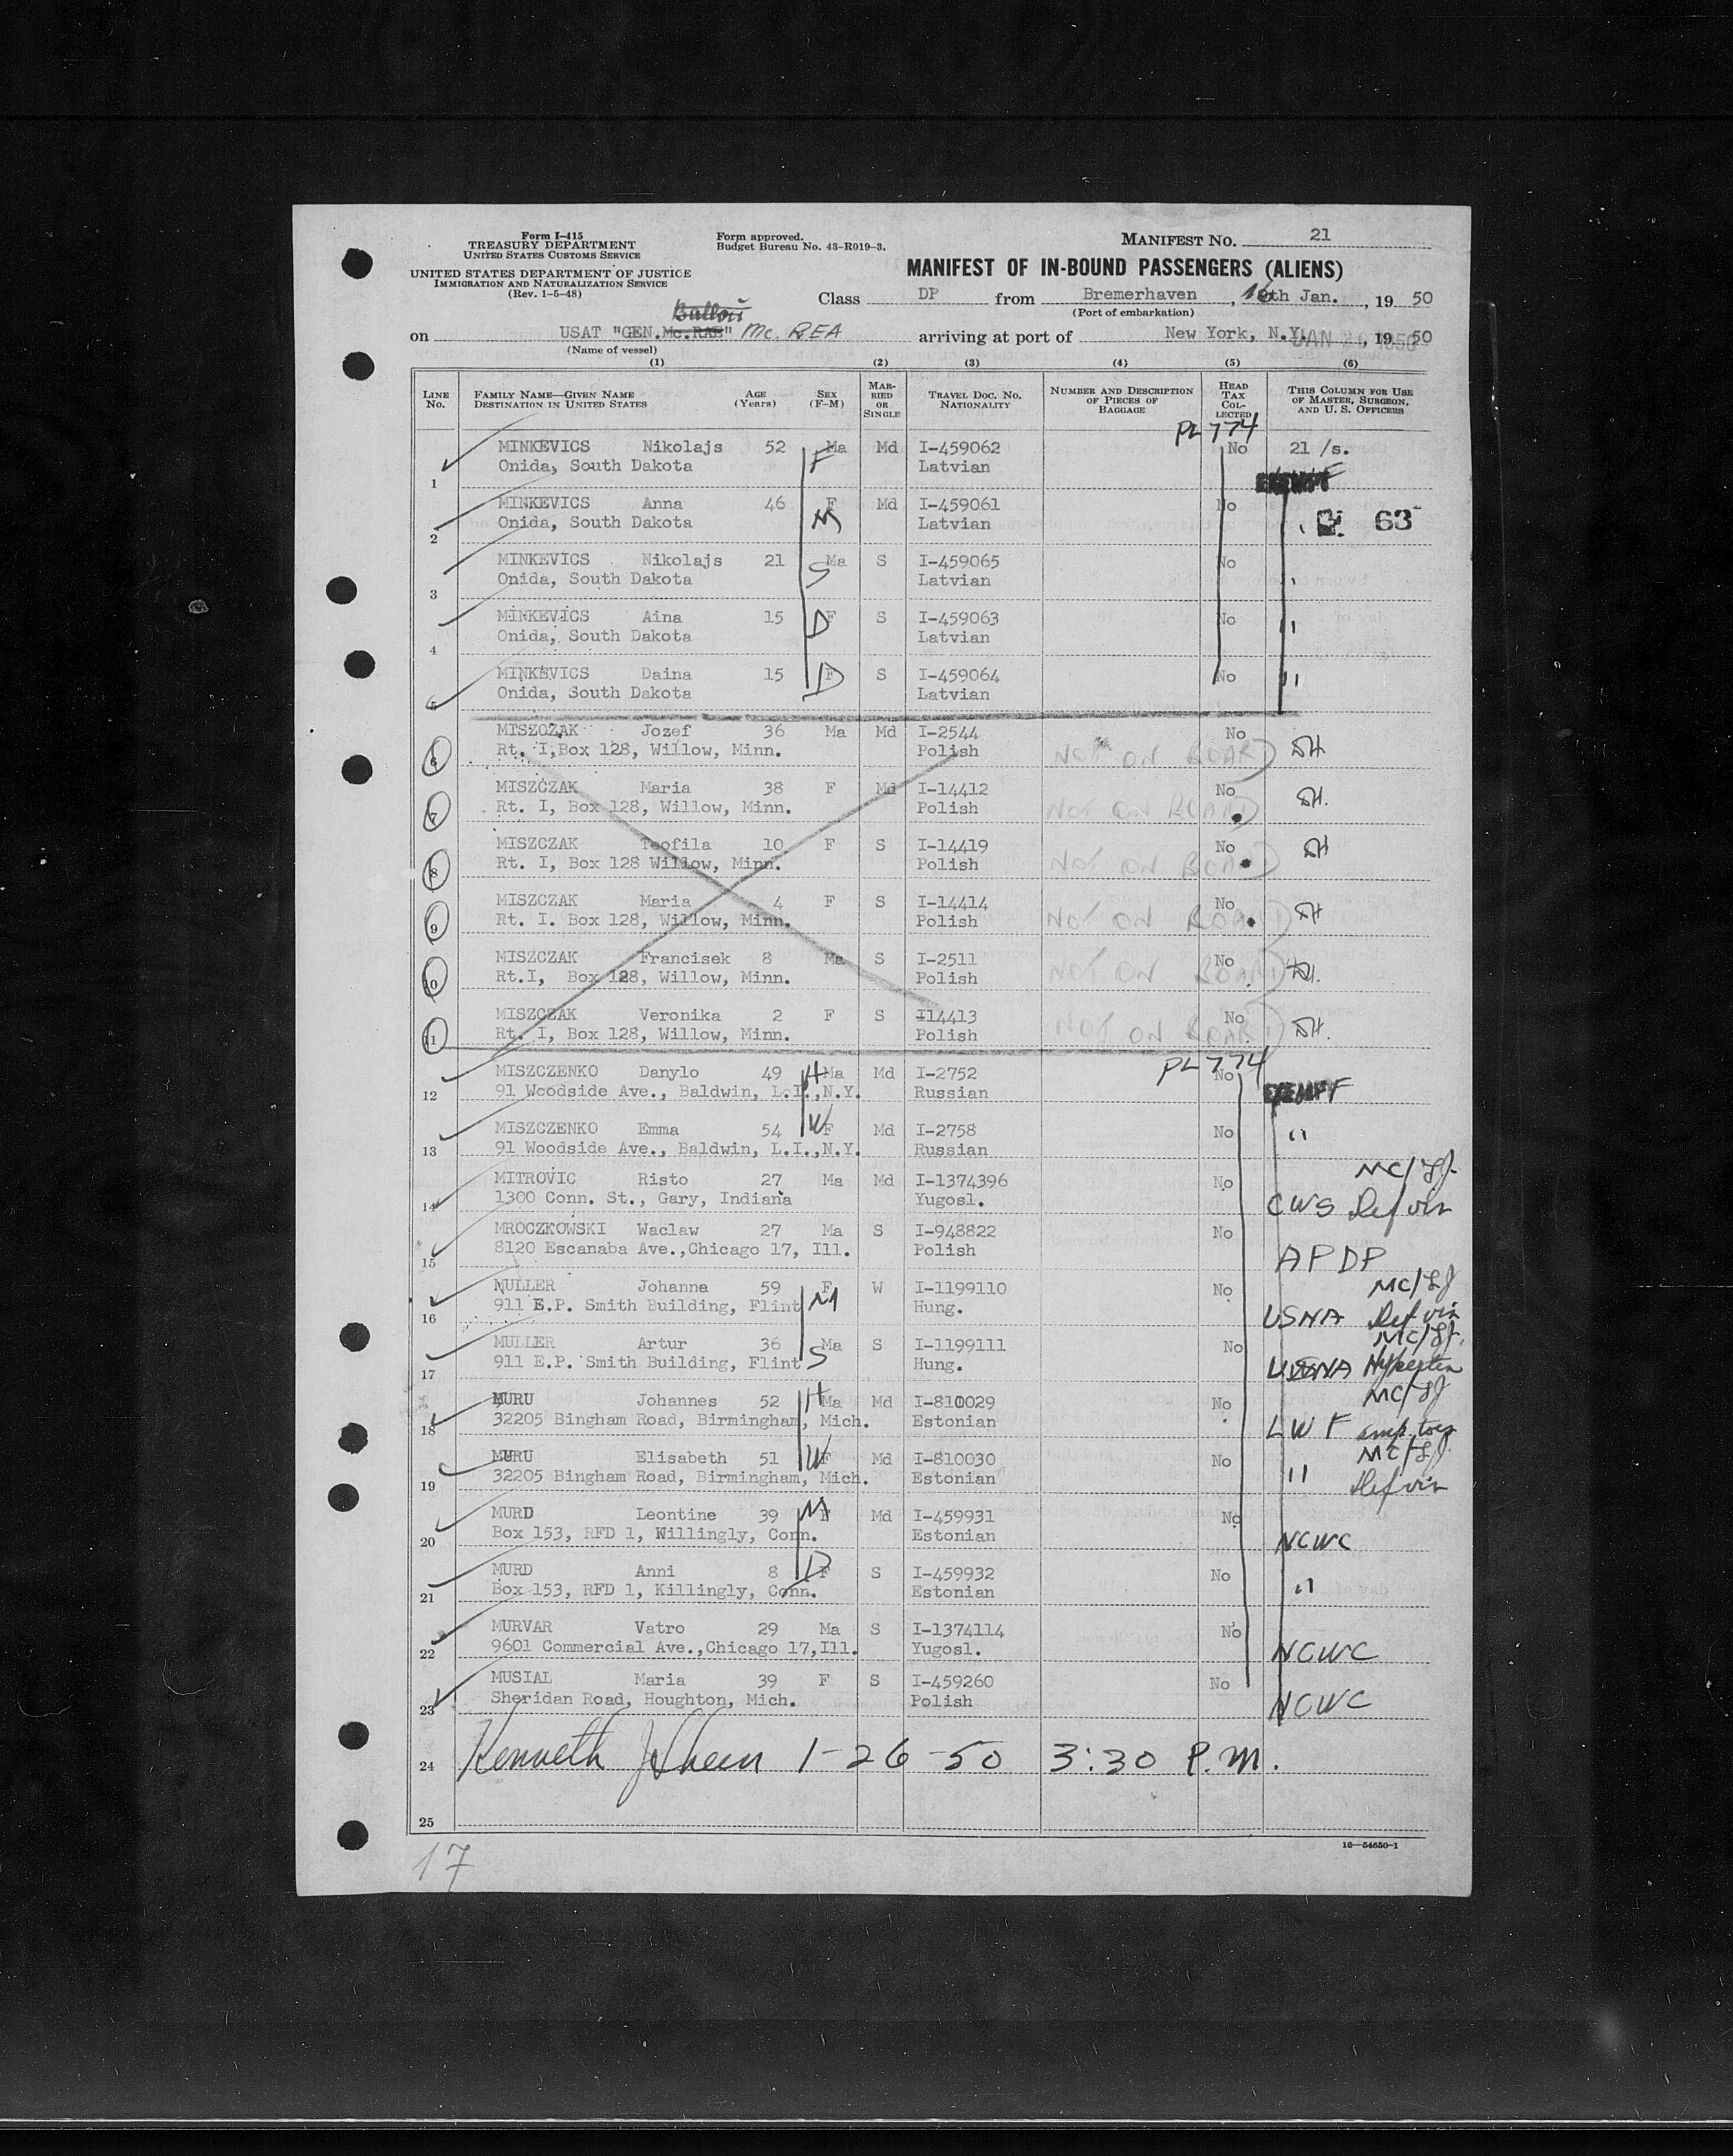 Form I-415
TREASURY DEPARTMENT
UNITED STATES CUSTOMS SERVICE
UNITED STATES DEPARTMENT OF JUSTICE
IMMIGRATION AND NATURALIZATION SERVICE
(Rev. 1-5-48)
Form approved.
Budget Bureau No. 43-R019-3.
MANIFEST NO. 21
MANIFEST OF IN-BOUND PASSENGERS (ALIENS)
Class DP from Bremerhaven, 16th Jan., 1950
(Port of embarkation)
on USAT "GEN. Mc.RAE" Mc. REA arriving at port of New York, N.Y., 1950
(Name of vessel)
(1) (2) (3) (4) (5) (6)
LINE No. FAMILY NAME—GIVEN NAME DESTINATION IN UNITED STATES AGE (Years) SEX (F-M) MARRIED OR SINGLE TRAVEL DOC. NO. NATIONALITY NUMBER AND DESCRIPTION OF PIECES OF BAGGAGE HEAD TAX COLLECTED THIS COLUMN FOR USE OF MASTER, SURGEON, AND U. S. OFFICERS
PL 774
MINKEVICS Nikolajs 52 Ma Md I-459062 No 21 /s.
1 Onida, South Dakota F Latvian
EXEMPT
MINKEVICS Anna 46 F Md I-459061 No
2 Onida, South Dakota M Latvian " 63
MINKEVICS Nikolajs 21 Ma S I-459065 No
3 Onida, South Dakota S Latvian "
MINKEVICS Aina 15 F S I-459063 No
4 Onida, South Dakota D Latvian "
MINKEVICS Daina 15 F S I-459064 No
5 Onida, South Dakota D Latvian "
MISZOZAK Jozef 36 Ma Md I-2544 No
6 Rt. I,Box 128, Willow, Minn. Polish NOT ON BOARD
MISZCZAK Maria 38 F Md I-14412 No
7 Rt. I, Box 128, Willow, Minn. Polish NOT ON BOARD
MISZCZAK Teofila 10 F S I-14419 No
8 Rt. I, Box 128 Willow, Minn. Polish NOT ON BOARD
MISZCZAK Maria 4 F S I-14414 No
9 Rt. I. Box 128, Willow, Minn. Polish NOT ON BOARD
MISZCZAK Francisek 8 Ma S I-2511 No
10 Rt.I, Box 128, Willow, Minn. Polish NOT ON BOARD
MISZCZAK Veronika 2 F S I14413 No
11 Rt. I, Box 128, Willow, Minn. Polish NOT ON BOARD
PL 774
MISZCZENKO Danylo 49 H Ma Md I-2752 No
12 91 Woodside Ave., Baldwin, L.I.,N.Y. Russian EXEMPT
MISZCZENKO Emma 54 W F Md I-2758 No
13 91 Woodside Ave., Baldwin, L.I.,N.Y. Russian "
MITROVIC Risto 27 Ma Md I-1374396 No
14 1300 Conn. St., Gary, Indiana Yugosl. CWS Def vis
MROCZKOWSKI Waclaw 27 Ma S I-948822 No
15 8120 Escanaba Ave.,Chicago 17, Ill. Polish APDP
MULLER Johanna 59 F W I-1199110 No
16 911 E.P. Smith Building, Flint M Hung. USNA Def vis
MULLER Artur 36 Ma S I-1199111 No
17 911 E.P. Smith Building, Flint S Hung. USNA Hyperten
MURU Johannes 52 H Ma Md I-810029 No
18 32205 Bingham Road, Birmingham, Mich. Estonian LWF amp. toes
MURU Elisabeth 51 W F Md I-810030 No
19 32205 Bingham Road, Birmingham, Mich. Estonian " Def vis
MURD Leontine 39 M F Md I-459931 No
20 Box 153, RFD 1, Willingly, Conn. Estonian NCWC
MURD Anni 8 D F S I-459932 No
21 Box 153, RFD 1, Killingly, Conn. Estonian "
MURVAR Vatro 29 Ma S I-1374114 No
22 9601 Commercial Ave.,Chicago 17,Ill. Yugosl. NCWC
MUSIAL Maria 39 F S I-459260 No
23 Sheridan Road, Houghton, Mich. Polish NCWC
24 Kenneth 1-26-50 3:30 P.M.
25
16—54650-1
17